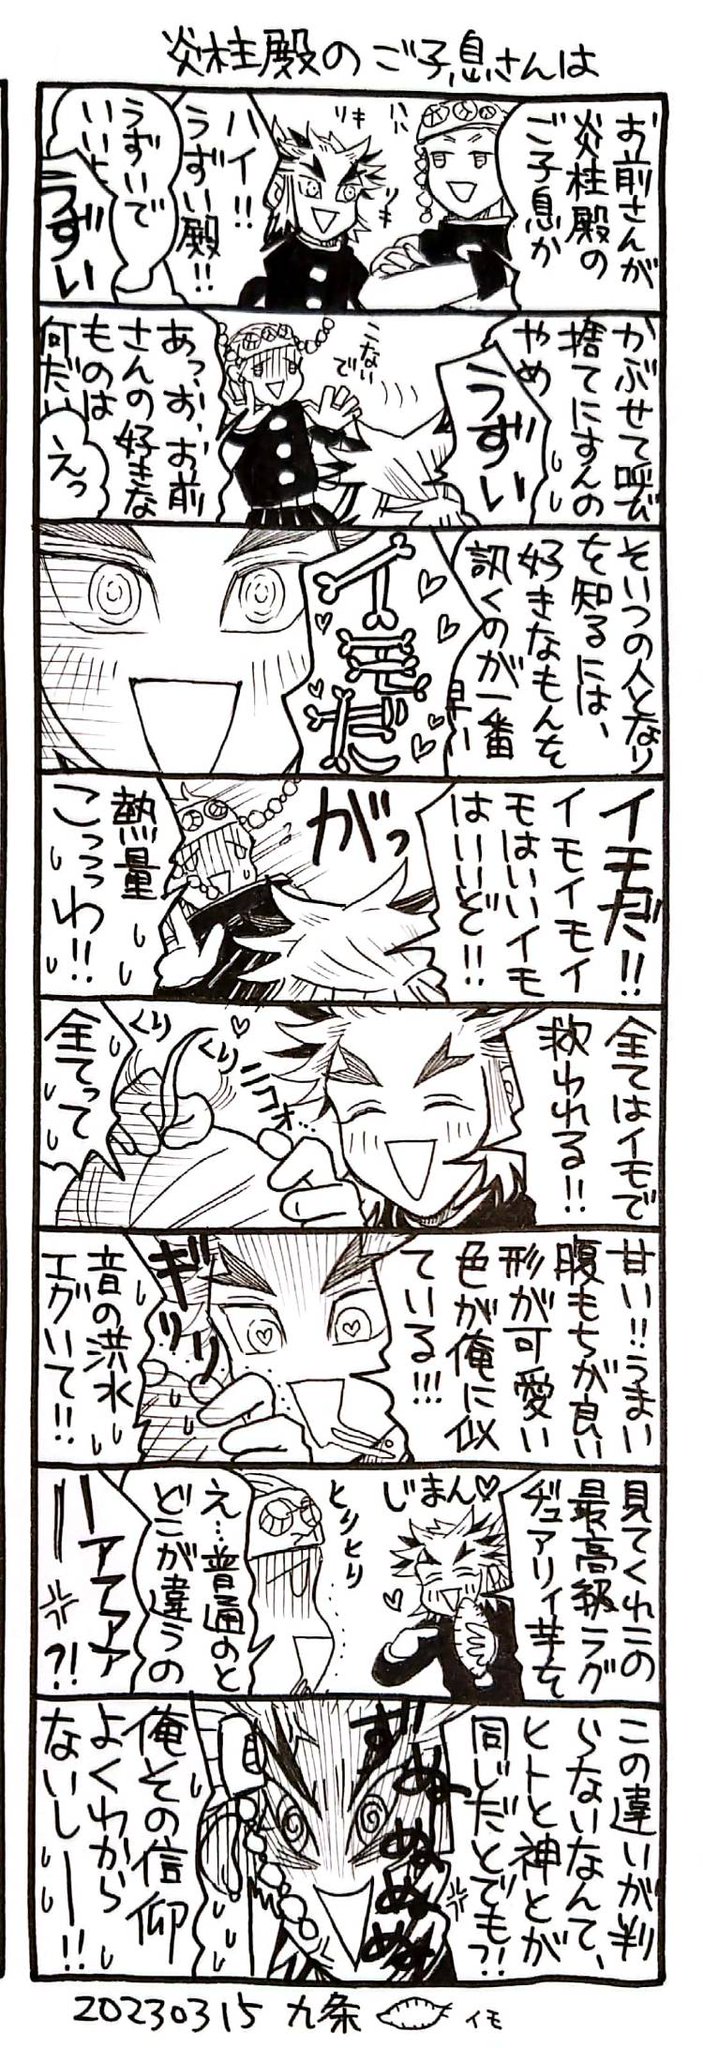 炎柱殿のご子息さんは
お前さんが
炎柱殿の
ご子息か
ハハ
リキ
リキ
ハイ!!
うずい殿!!
うずいで
いいよ
うずい
かぶせて呼び
捨てにすんの
やめ
うずい
こないで
あっ、お、お前
さんの好きな
ものは
何だい
えっ
そいつの人となり
を知るには、
好きなもんを
訊くのが一番
早い
イモだ
イモだ!!
イモイモイ
モはいいイモ
はいいぞ!!
がっ
熱量
こっっっわ!!
全てはイモで
救われる!!
ニコォ…
くり
くり
全てって
甘い!!うまい
腹もちが良い
形が可愛い
色が俺に似
ている!!!
ギリリリ
音の洪水
エグいて!!
見てくれこの
最高級ラグ
ヂュアリィ芋を
じまん♡
とりとり
え…普通のと
どこが違うの
ーアアアァ
ー?!
この違いが判
らないなんて、
ヒトと神とが
同じだとでも?!
ずぬぬぬぬぬ
俺その信仰
よくわから
ないしー!!
20230315 九条 イモ